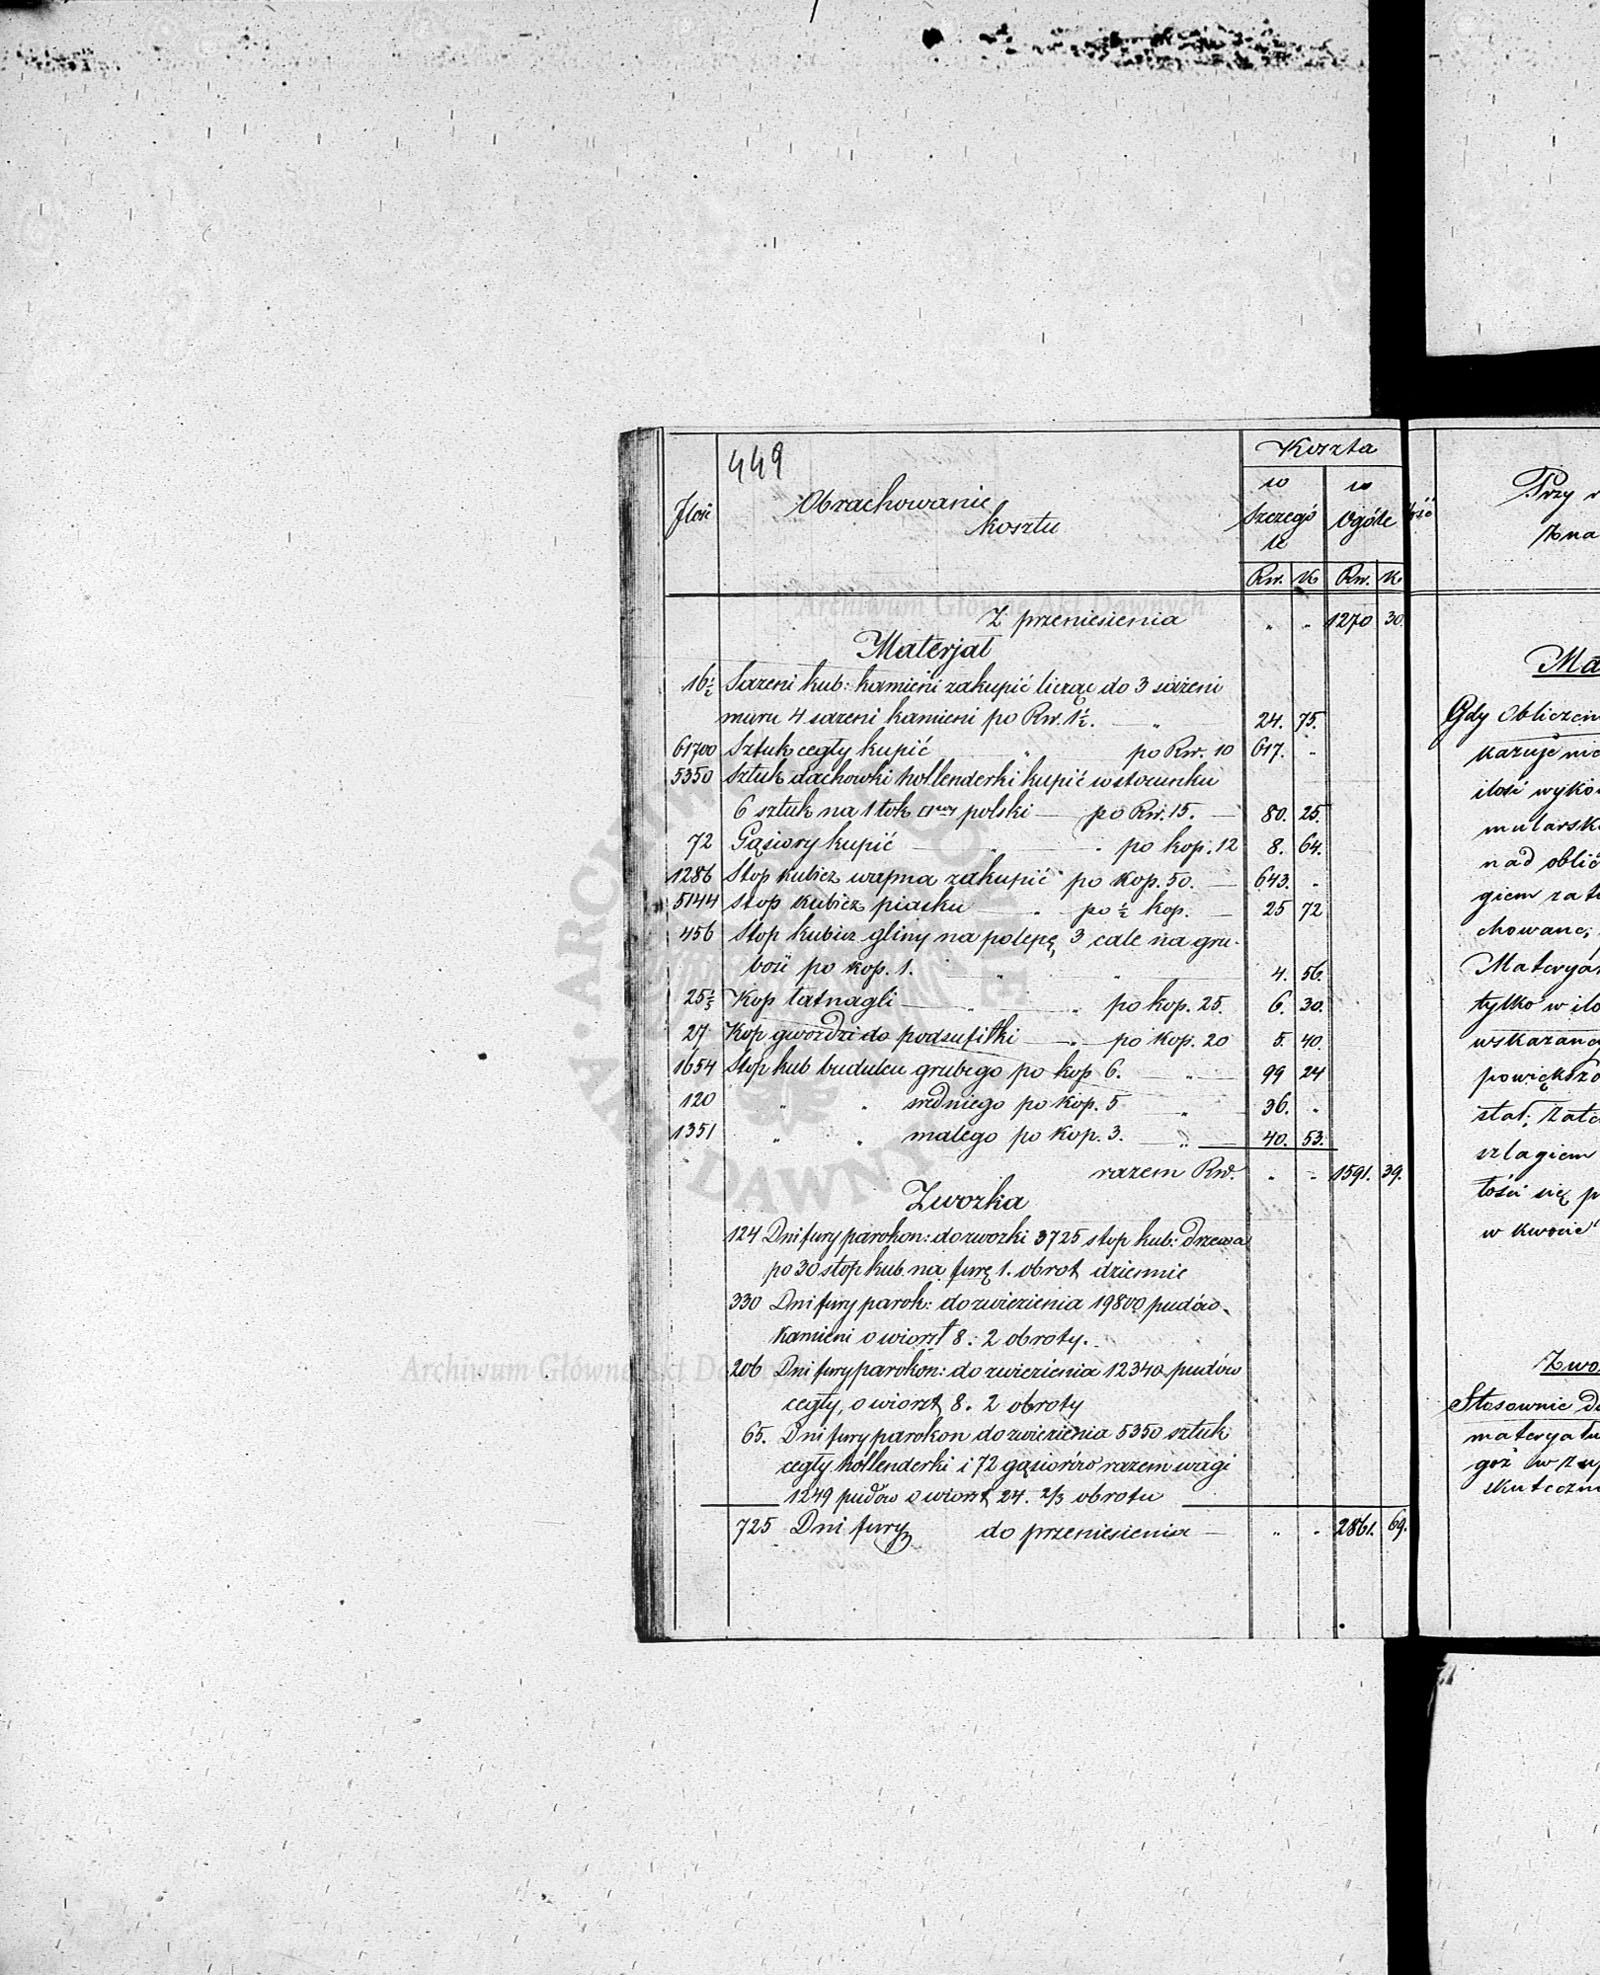 449
Koszta
Ilość
Obrachowanie
kosztu
w
Szczegó
le
w
Ogóle
Rsr. K Rsr. K
Z przeniesienia " " 1270 30.
Materjał
16½ Sażeni kub: kamieni zakupić licząc do 3 sażeni
muru 4 sażeni kamieni po Rsr. 1½. — " 24. 75.
61700 Sztuk cegły kupić " po Rsr. 10 617. "
5350 Sztuk dachówki hollenderki kupić w stosunku
6 sztuk na 1 łok polski — po Rsr. 15. — 80. 25.
72 Gąsiory kupić — " — po kop. 12 8. 64.
1286 Stop kubicz wapna zakupić po kop. 50. — 643. "
5144 Stop kubicz piasku — " — po ½ kop. — 25 72
456 Stop kubicz gliny na polepę 3 cale na gru-
bość po kop. 1. " " 4. 56.
25½ Kop łatnagli — " — po kop. 25. 6. 30.
27 Kop gwoździ do podsufitki — " — po kop. 20 5. 40.
1654 Stop kub budulcu grubego po kop 6. — " — 99 24
120 " " średniego po kop. 5 " 36. "
1351 " " małego po kop. 3. — " — 40. 53.
razem Rsr. " " 1591. 39.
Zwózka
124 Dni fury parokon: do zwózki 3725 stop kub: drzewa
po 30 stop kub. na furę 1. obrot dziennie
330 Dni fury parok: do zwiezienia 19800 pudów
kamieni o wiorst 8. 2 obroty.
206 Dni fury parokon: do zwiezienia 12340 pudów
cegły, o wiorst 8. 2 obroty
65. Dni fury parokon do zwiezienia 5350 sztuk
cegły hollenderki i 72 gąsiorów razem wagi
1249 pudów o wiorst 24. 2/3 obrotu
725 Dni fury do przeniesienia — " " 2861. 69.
Przy
Ma
Gdy obliczen
kazuje
ilość wyko
mularsk
nad oblic
giem
chowane,
Materyał
tylko w
wskazane
powiększo
szlagiem
tości się
w kwocie
Zwo
Stosownie do
materyału
goż w
skuteczn
Archiwum Główne Akt Dawnych
Archiwum Główne Akt Dawnych